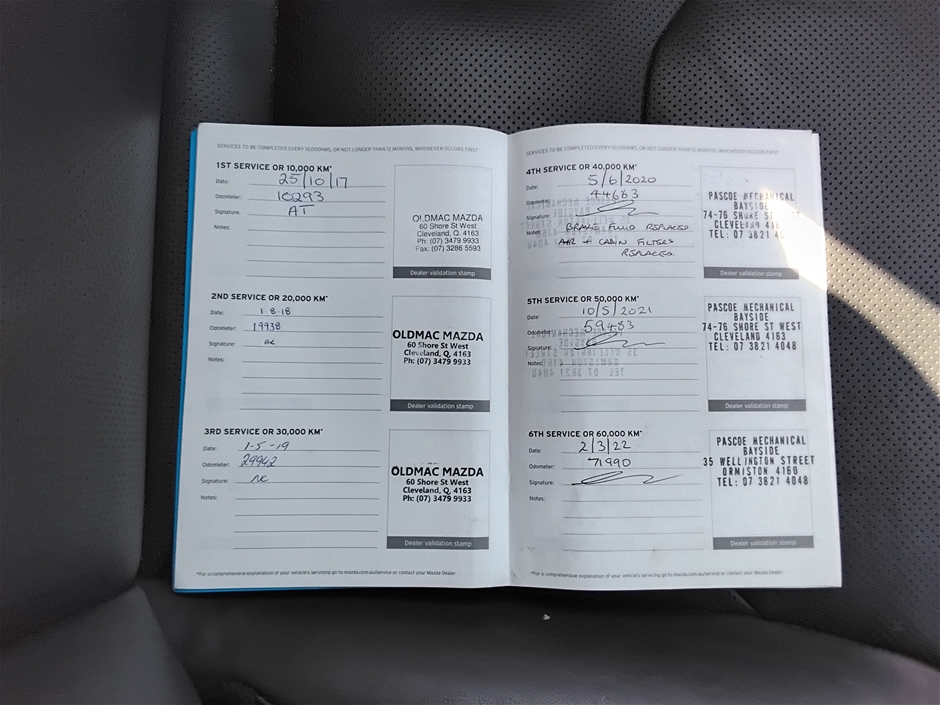 SERVICES TO BE COMPLETED EVERY 10,000KMS, OR NOT LONGER THAN 12 MONTHS, WHICHEVER OCCURS FIRST
1ST SERVICE OR 10,000 KM*
Date: 25/10/17
Odometer: 10293
Signature: AT
Notes:
OLDMAC MAZDA
60 Shore St West
Cleveland, Q. 4163
Ph: (07) 3479 9933
Fax: (07) 3286 5593
Dealer validation stamp
2ND SERVICE OR 20,000 KM*
Date: 1-8-18
Odometer: 19938
Signature:
Notes:
OLDMAC MAZDA
60 Shore St West
Cleveland, Q. 4163
Ph: (07) 3479 9933
Dealer validation stamp
3RD SERVICE OR 30,000 KM*
Date: 1-5-19
Odometer: 29942
Signature: NC
Notes:
OLDMAC MAZDA
60 Shore St West
Cleveland, Q. 4163
Ph: (07) 3479 9933
Dealer validation stamp
*For a comprehensive explanation of your vehicle's servicing go to mazda.com.au/service or contact your Mazda Dealer
SERVICES TO BE COMPLETED EVERY 10,000KMS, OR NOT LONGER THAN 12 MONTHS, WHICHEVER OCCURS FIRST
4TH SERVICE OR 40,000 KM*
Date: 5/6/2020
Odometer: 44663
Signature:
Notes: BRAKE FLUID REPLACED
AIR + CABIN FILTERS
REPLACED.
PASCOE MECHANICAL
BAYSIDE
74-76 SHORE ST
CLEVELAND
TEL: 07 3821
Dealer validation stamp
5TH SERVICE OR 50,000 KM*
Date: 10/5/2021
Odometer: 59483
Signature:
Notes:
PASCOE MECHANICAL
BAYSIDE
74-76 SHORE ST WEST
CLEVELAND 4163
TEL: 07 3821 4048
Dealer validation stamp
6TH SERVICE OR 60,000 KM*
Date: 2/3/22
Odometer: 71990
Signature:
Notes:
PASCOE MECHANICAL
BAYSIDE
35 WELLINGTON STREET
ORMISTON 4160
TEL: 07 3821 4048
Dealer validation stamp
*For a comprehensive explanation of your vehicle's servicing go to mazda.com.au/service or contact your Mazda Dealer